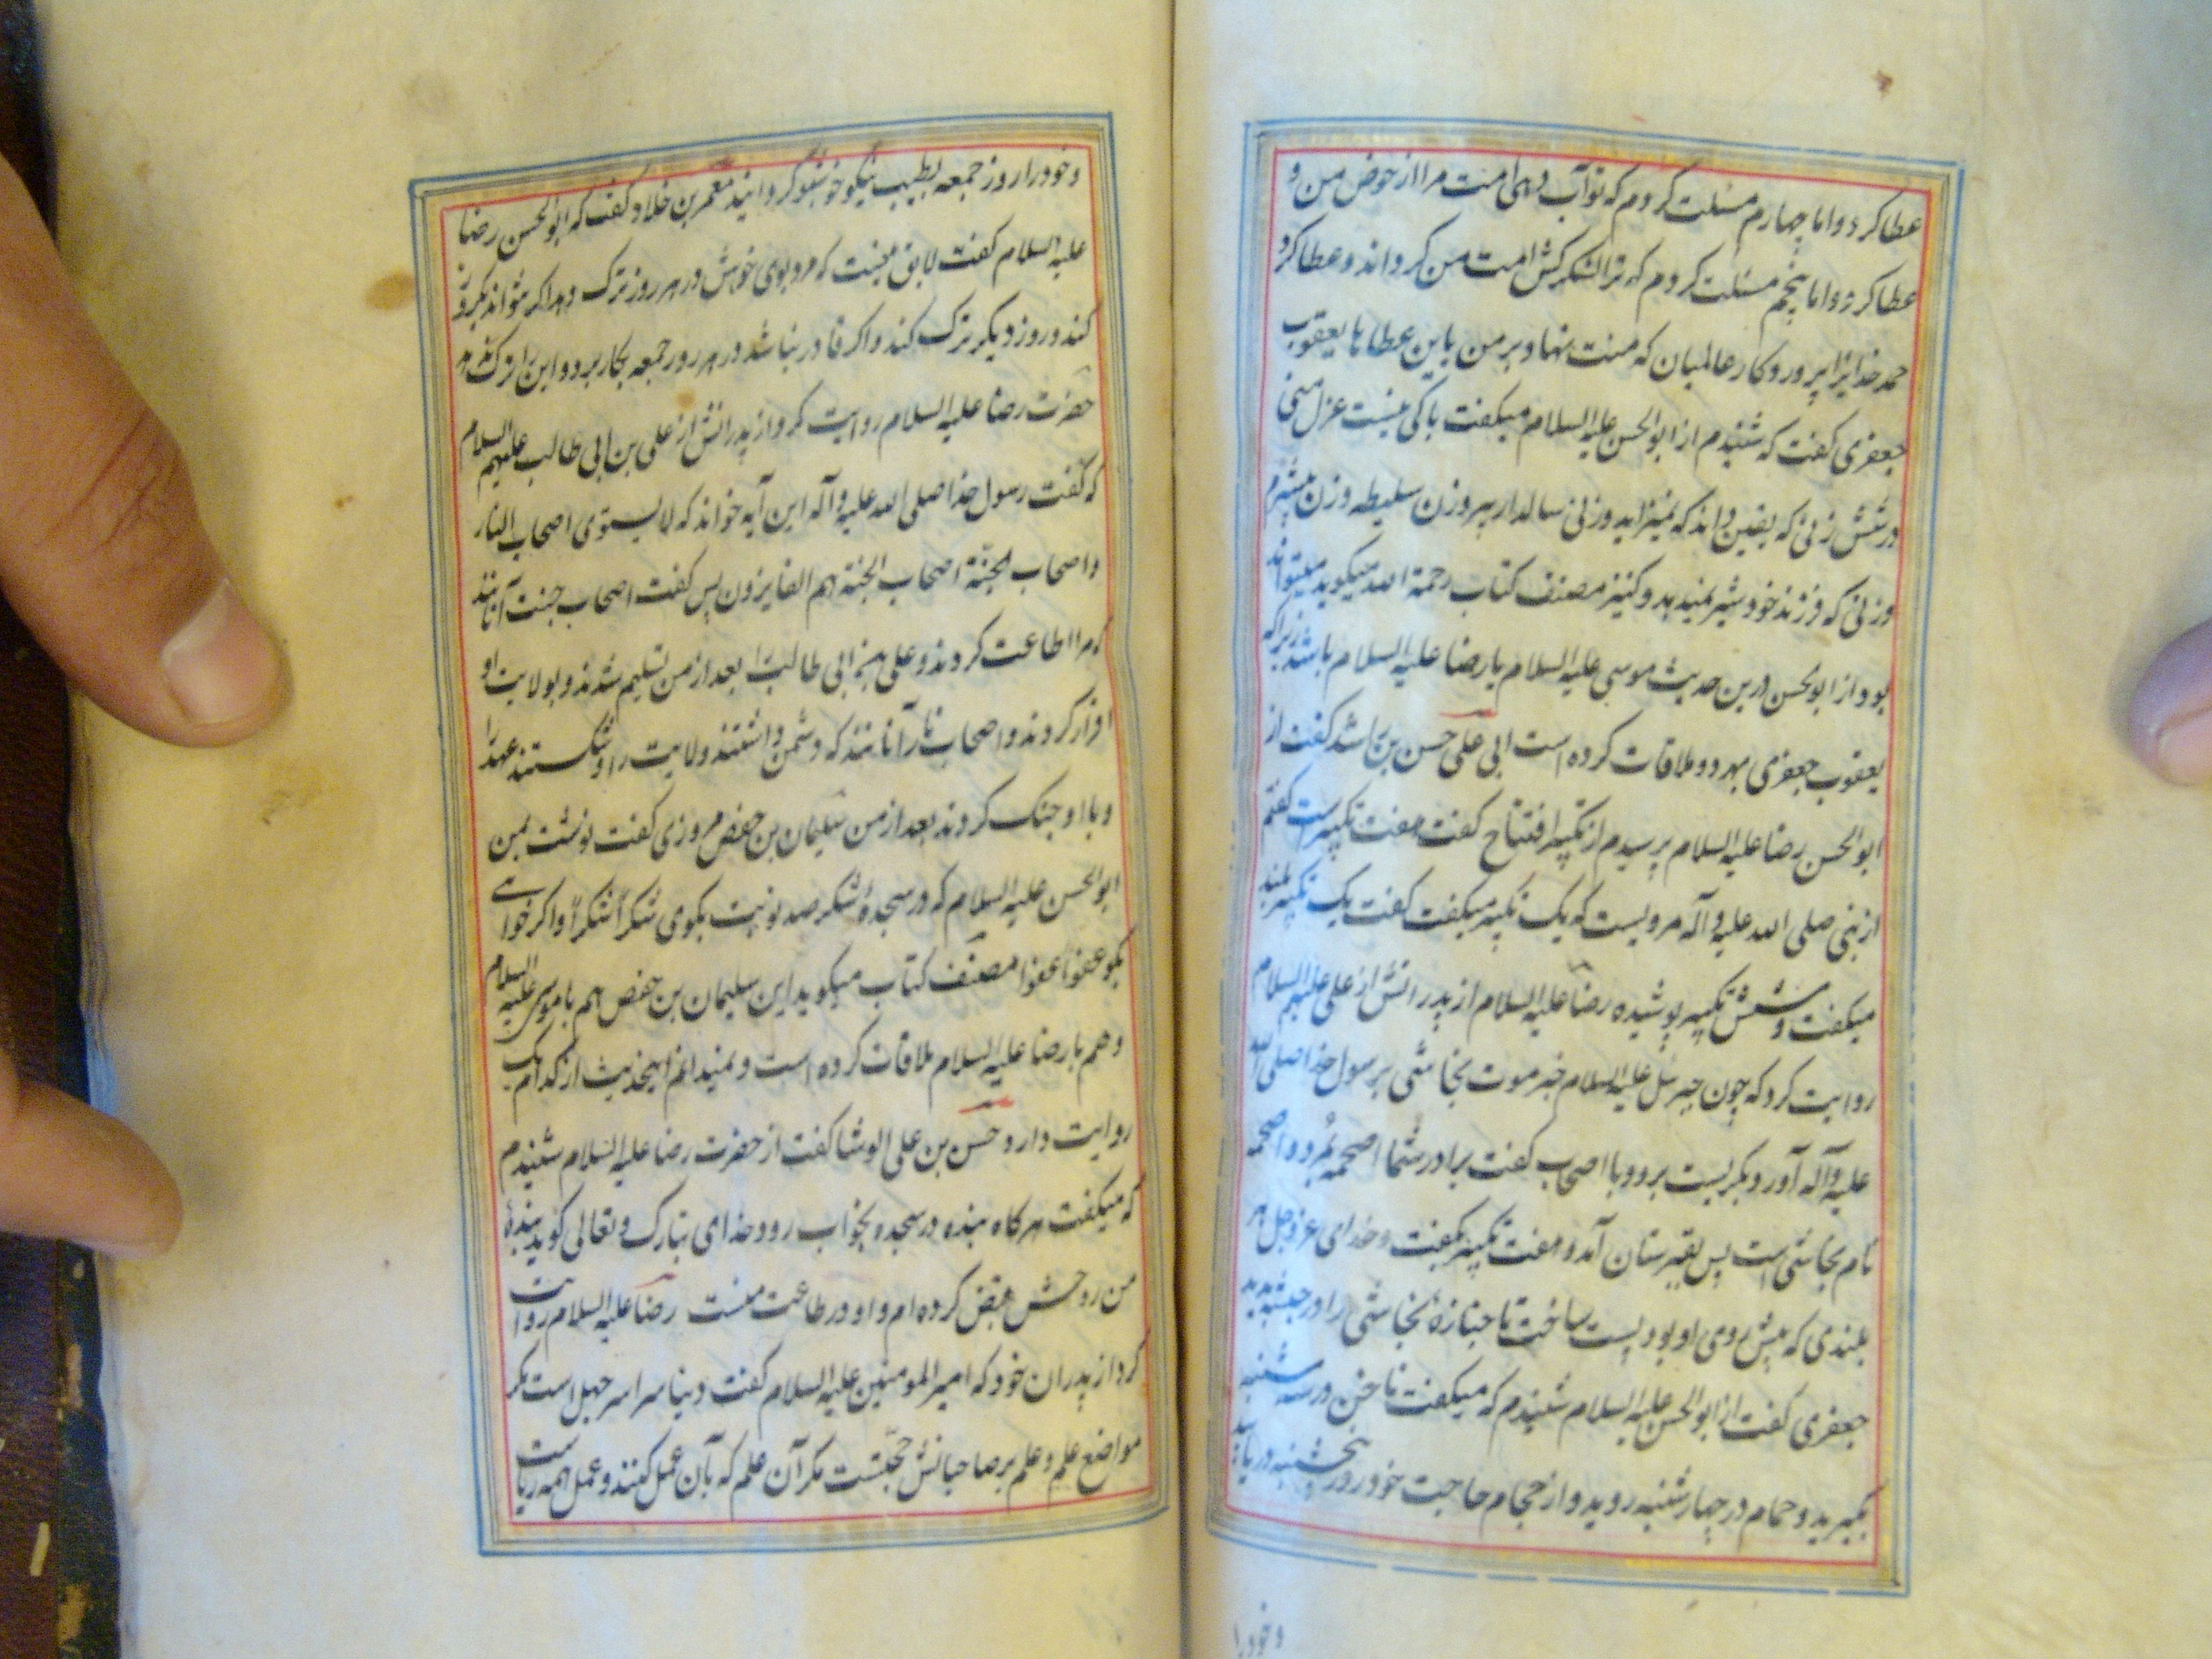 عطا کرد و اما چهارم مسئلت کردم که تو آب دهی امت مرا از حوض من و
عطا کرد و اما پنجم مسئلت کردم که ترا لشکرکش امت من کرداند و عطا کرد
حمد خدایرا پروردکار عالمیان که منت نهاد بر من باین عطاها یعقوب
جعفری کفت که شنیدم از ابو الحسن علیه السلام میکفت باکی نیست عزل منی
در شش زنی که یقین داند که نمیزاید و زنی سالدار پیر و زن سلیطه و زن بیشرم
و زنی که فرزند خود شیر نمیدهد و کنیز مصنف کتاب رحمة الله میکوید میتواند
بود از ابو لحسن درین حدیث موسی علیه السلام یا رضا علیه السلام باشد زیرا که
یعقوب جعفری بهر دو ملاقات کرده است ابی علی حسن بن راشد کفت از
ابو الحسن رضا علیه السلام پرسیدم از تکبیر افتتاح کفت هفت تکبیر است کفتم
از نبی صلی الله علیه و آله مرویست که یک تکبیر میکفت کفت یک تکبیر بلند
میکفت و شش تکبیر پوشیده رضا علیه السلام از پدرانش از علی علیهم السلام
روایت کرد که چون جبرئیل علیه السلام خبر موت نجاشی بر رسول خدا صلی الله
علیه و آله آورد بکریست برو و با اصحاب کفت برادر شما اصحمه بمرد و اصحمه
نام نجاشی است پس بقبرستان آمد و هفت تکبیر بکفت و خدای عز و جل هر
بلندی که پیش روی او بود پست ساخت تا جنازهٔ نجاشی را در حبشه بدید
جعفری کفت از ابو الحسن علیه السلام شنیدم که میکفت ناخن در سه شنبه
بکیرید و حمام در چهارشنبه روید و از حجام حاجت خود روز پنجشنبه دریابید
و خود را
و خود را روز جمعه بطیب نیکو خوشبو کردانید معمر بن خلاد کفت که ابو الحسن رضا
علیه السلام کفت لایق نیست که مرد بوی خوش در هر روز ترک دهد اکر نتواند یکروز
کند و روز دیکر ترک کند و اکر قادر نباشد در هر روز جمعه بکار برد و این را ترک نکند
حضرت رضا علیه السلام روایت کرد از پدرانش از علی بن ابی طالب علیهم السلام
که کفت رسول خدا صلی الله علیه و آله این آیه خواند که لا یستوی اصحاب النار
و اصحاب الجنّة اصحاب الجنة هم الفایزون پس کفت اصحاب جنت آنانند
که مرا اطاعت کردند و علی بن ابی طالب را بعد از من تسلیم شدند و بولایت او
اقرار کردند و اصحاب نار آنانند که دشمن داشتند ولایت را و شکستند عهد را
و با او جنک کردند بعد از من سلیمان بن حفص مروزی کفت نوشت بمن
ابو الحسن علیه السلام که در سجدهٔ شکر صد نوبت بکوی شکراً شکراً و اکر خواهی
بکو عفواً عفوا مصنف کتاب میکوید این سلیمان بن حفص هم با موسی علیه السلام
و هم با رضا علیه السلام ملاقات کرده است و نمیدانم اینحدیث از کدام یک
روایت دارد حسن بن علی الوشا کفت از حضرت رضا علیه السلام شنیدم
که میکفت هر کاه بنده در سجده بخواب رود خدای تبارک و تعالی کوید بندهٔ
من روحش قبض کرده ام و او در طاعت منست رضا علیه السلام روایت
کرد از پدران خود که امیر المومنین علیه السلام کفت دنیا سراسر جهل است مکر
مواضع علم و علم بر صاحبانش حجّتست مکر آن علم که بآن عمل کنند و عمل همه ریاست